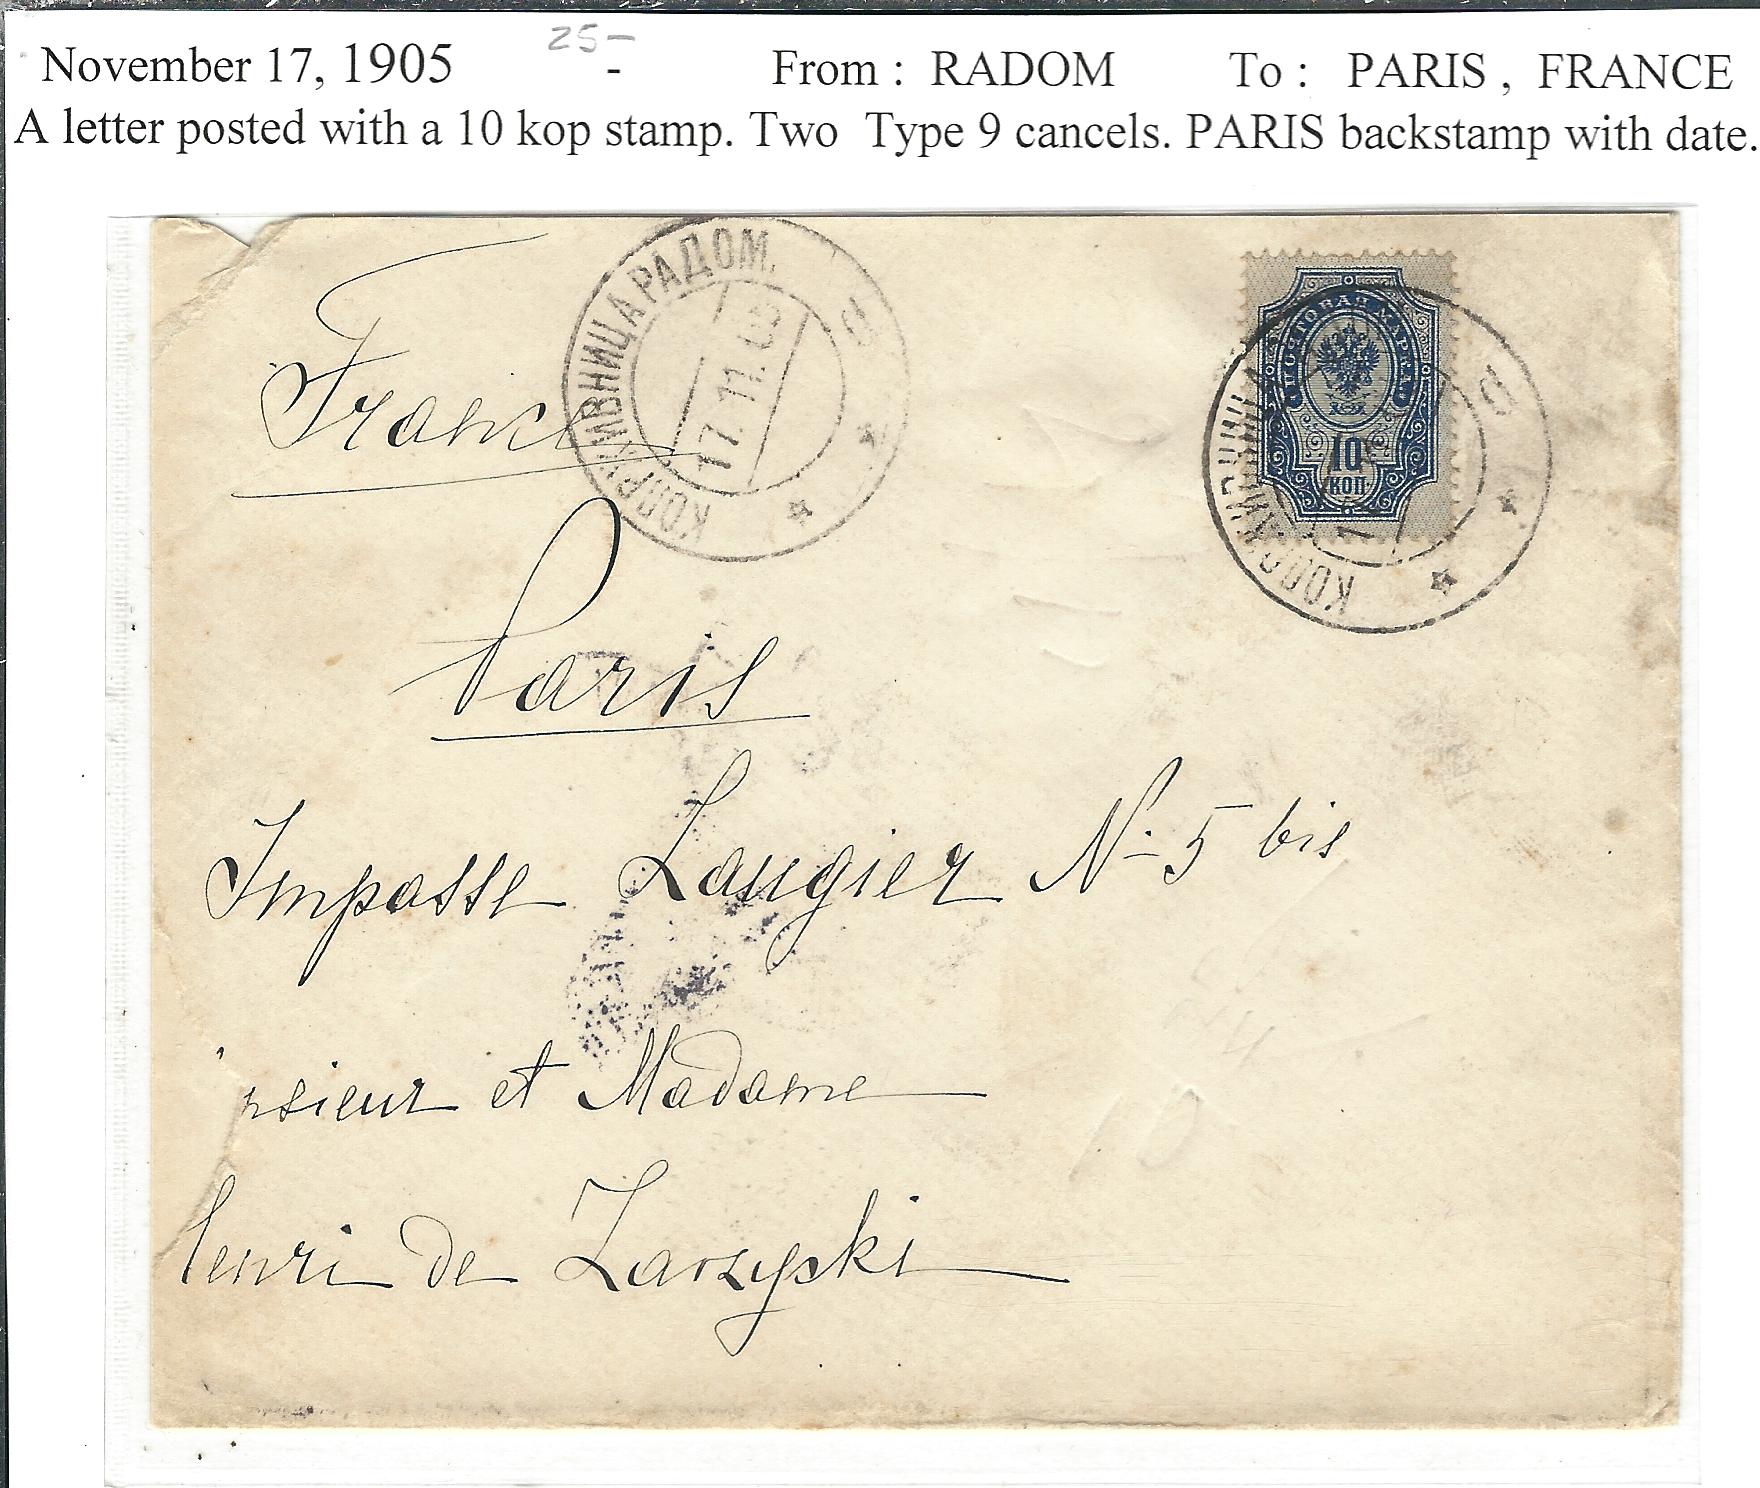 25-
November 17, 1905 - From : RADOM To : PARIS , FRANCE
A letter posted with a 10 kop stamp. Two Type 9 cancels. PARIS backstamp with date.
РАДОМ.
17.11.05
ПОЧТОВАЯ МАРКА
10
КОП
France
Paris
Impasse Laugier N- 5 bis
rsieur et Madame
enri de Zarzyski